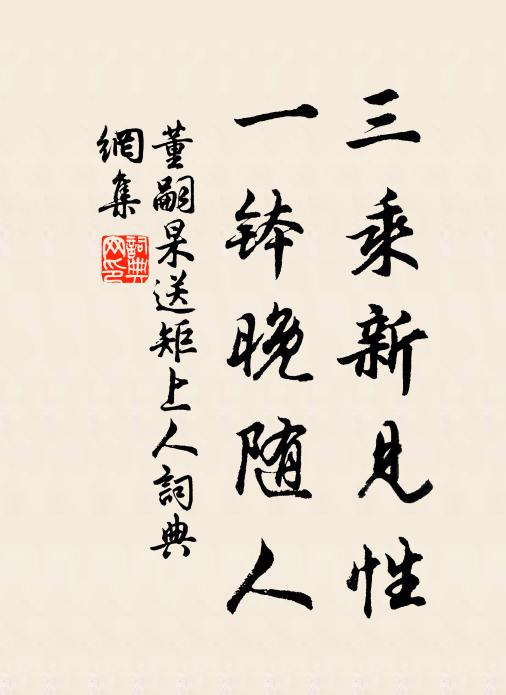 三乘新见性
一钵晚随人
董嗣杲送矩上人詞典
網集
詞典
网印